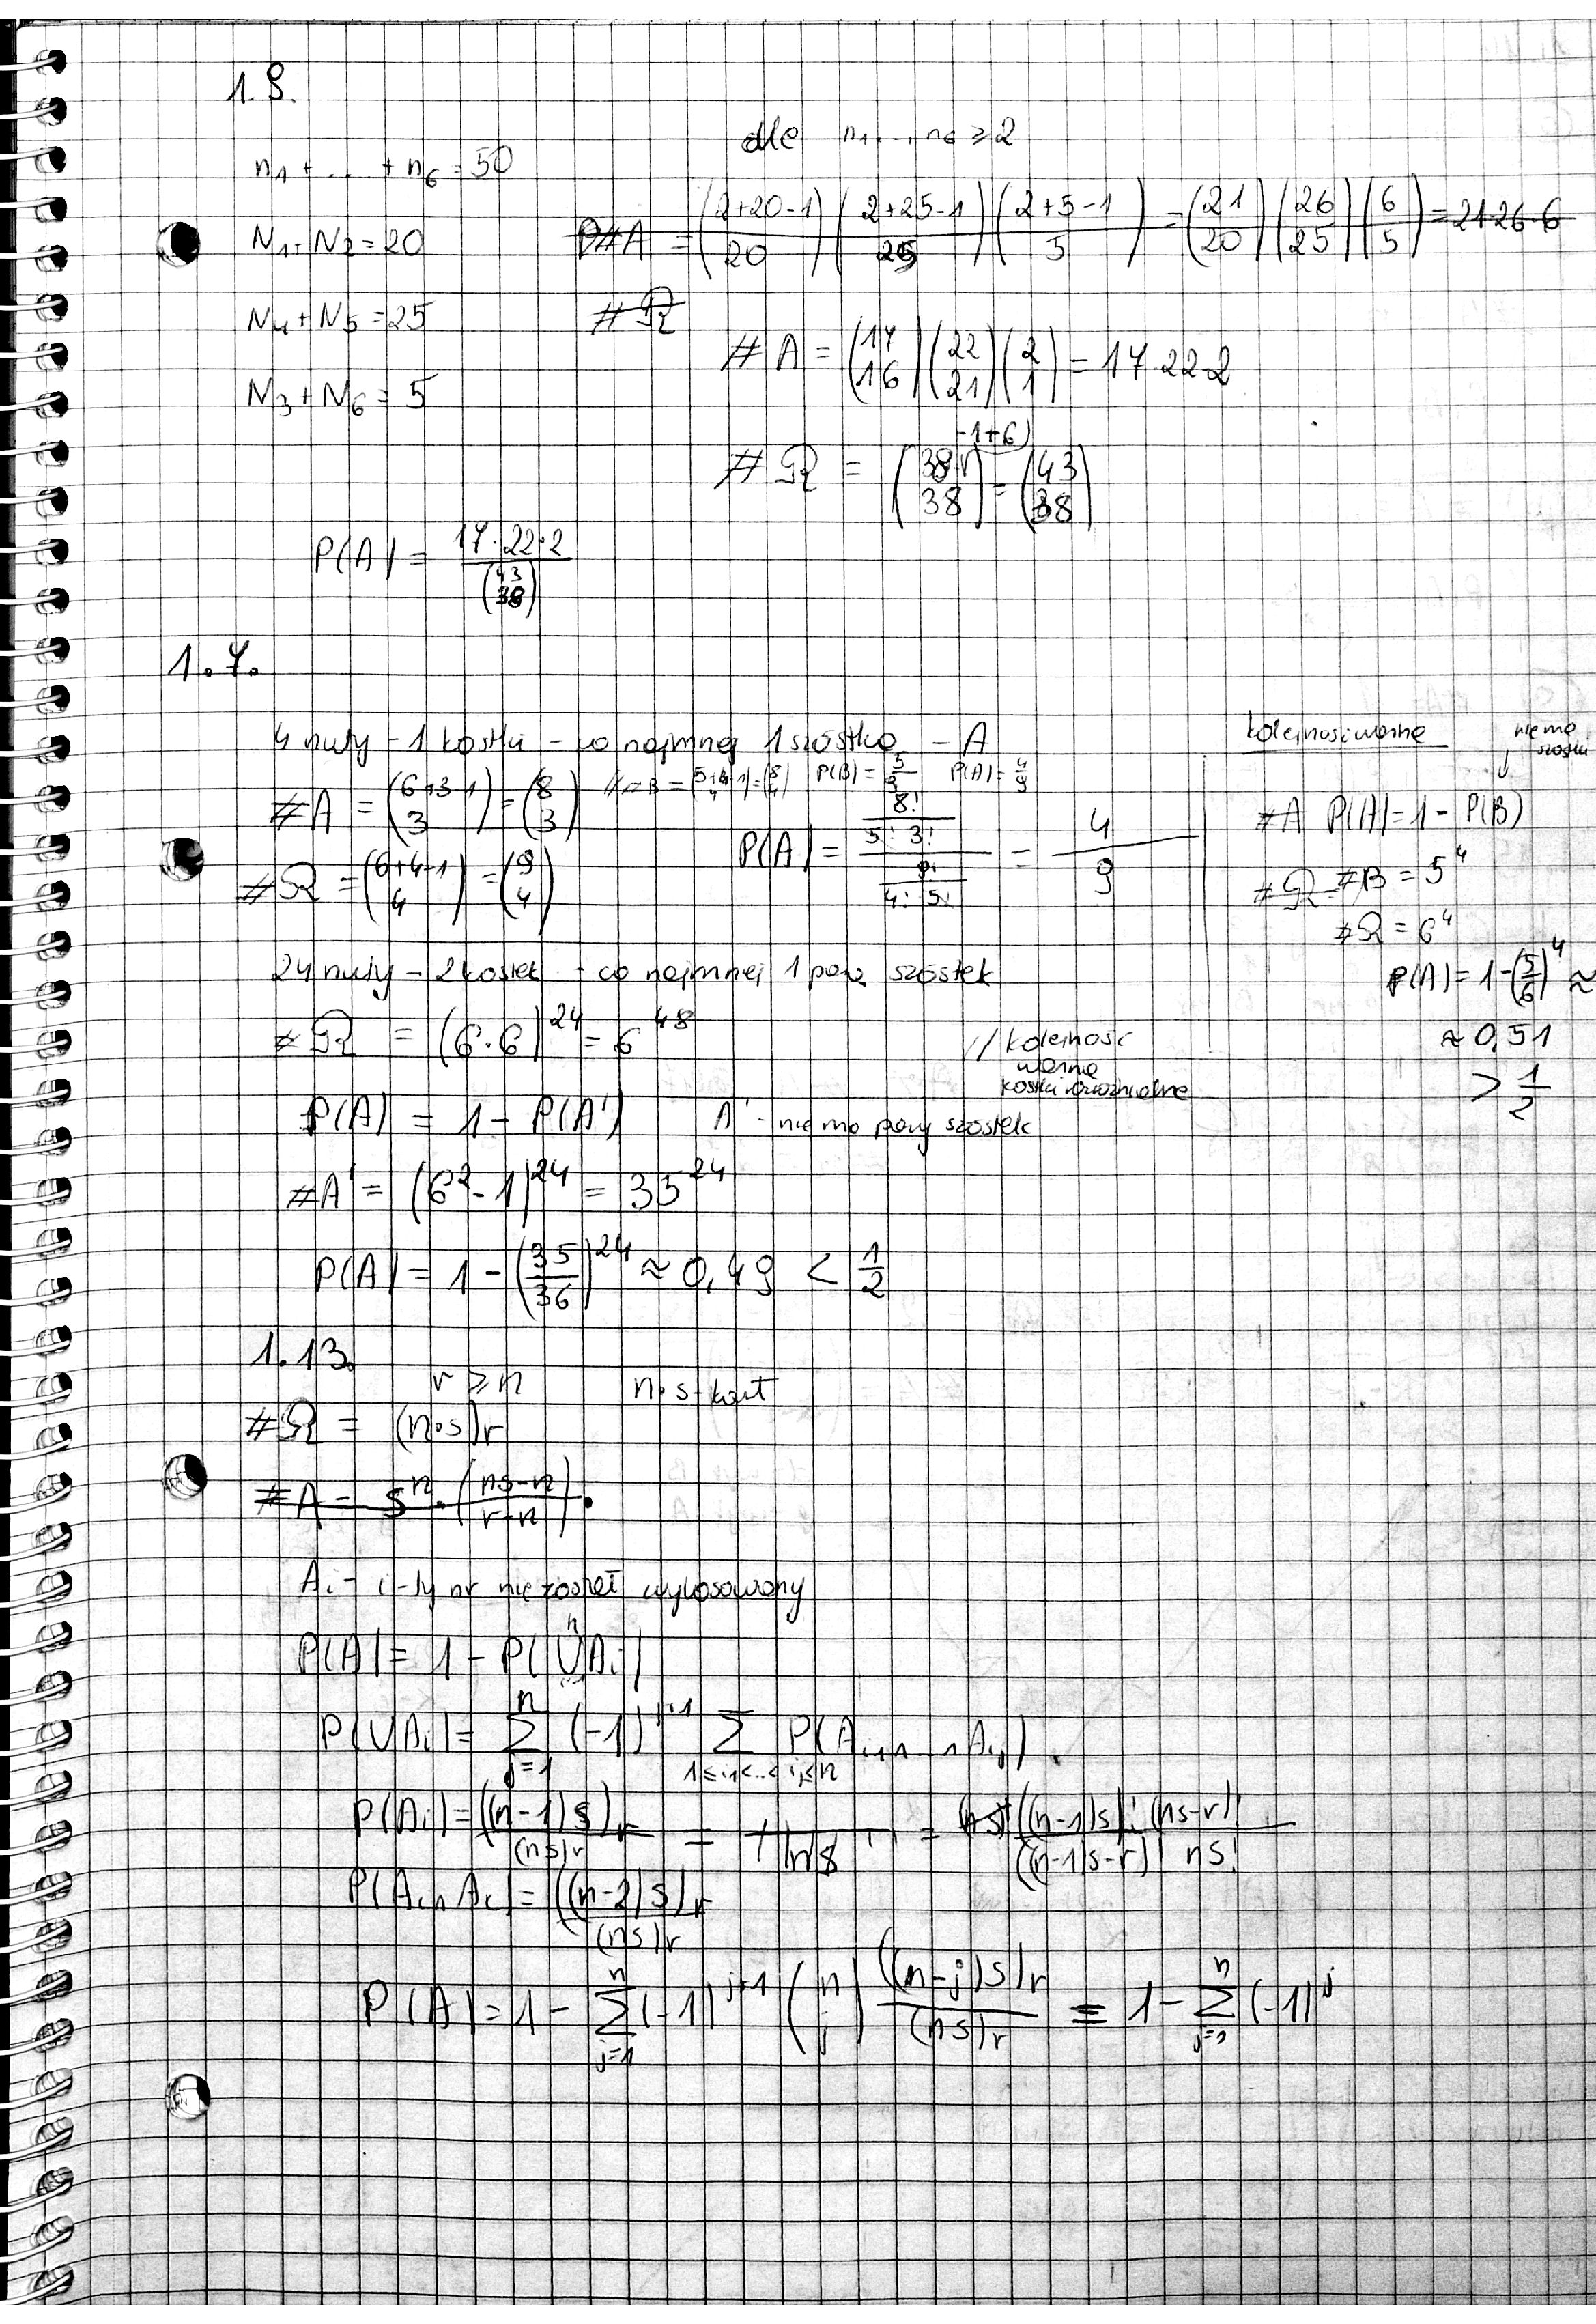 1.9.
dla n₁,...,n₆ ≥ 2
n₁ + ... + n₆ = 50
N₁+N₂ = 20
P#A = (2+20-1 / 20)(2+25-1 / 25)(2+5-1 / 5) = (21 / 20)(26 / 25)(6 / 5) = 21·26·6
N₄+N₅ = 25
#Ω
#A = (17 / 16)(22 / 21)(2 / 1) = 17·22·2
N₃+N₆ = 5
#Ω = (38-1+6 / 38) = (43 / 38)
P(A) = 17·22·2 / (43 / 38)
1.7.
4 rzuty - 1 kostką - co najmniej 1 szóstka - A
#A = (6+3-1 / 3) = (8 / 3) #B = (5+4-1 / 4) = (8 / 4) P(B) = 5/9 P(A) = 4/9
#Ω = (6+4-1 / 4) = (9 / 4)
P(A) = (8! / 5! 3!) / (9! / 4! 5!) = 4/9
kolejność ważna
nie ma szóstki
#A P(A) = 1 - P(B)
#Ω = #B = 5⁴
#Ω = 6⁴
P(A) = 1 - (5/6)⁴ ≈
≈ 0,51
> 1/2
24 rzuty - 2 kostek - co najmniej 1 para szóstek
#Ω = (6·6)²⁴ = 6⁴⁸
// kolejność
ważna
kostki rozróżnialne
P(A) = 1 - P(A') A' - nie ma pary szóstek
#A' = (6² - 1)²⁴ = 35²⁴
P(A) = 1 - (35/36)²⁴ ≈ 0,49 < 1/2
1.13.
r ≥ n n·s - kart
#Ω = (n·s)r
#A = sⁿ · (ns-n / r-n) ·
Aᵢ - i-ty nr nie został wylosowany
P(A) = 1 - P(⋃ⁿ Aᵢ)
P(⋃Aᵢ) = Σⁿ j=1 (-1)^j+1 Σ 1≤i₁<...<iⱼ≤n P(Aᵢ₁∩...∩Aᵢⱼ)
P(Aᵢ) = ((n-1)s)r / (ns)r = / ns = ((n-1)s)! (ns-r)! / ((n-1)s-r)! ns!
P(Aᵢ∩Aᵢ) = ((n-2)s)r / (ns)r
P(A) = 1 - Σⁿ j=1 (-1)^j+1 (n / j) ((n-j)s)r / (ns)r = 1 - Σⁿ j=1 (-1)^j